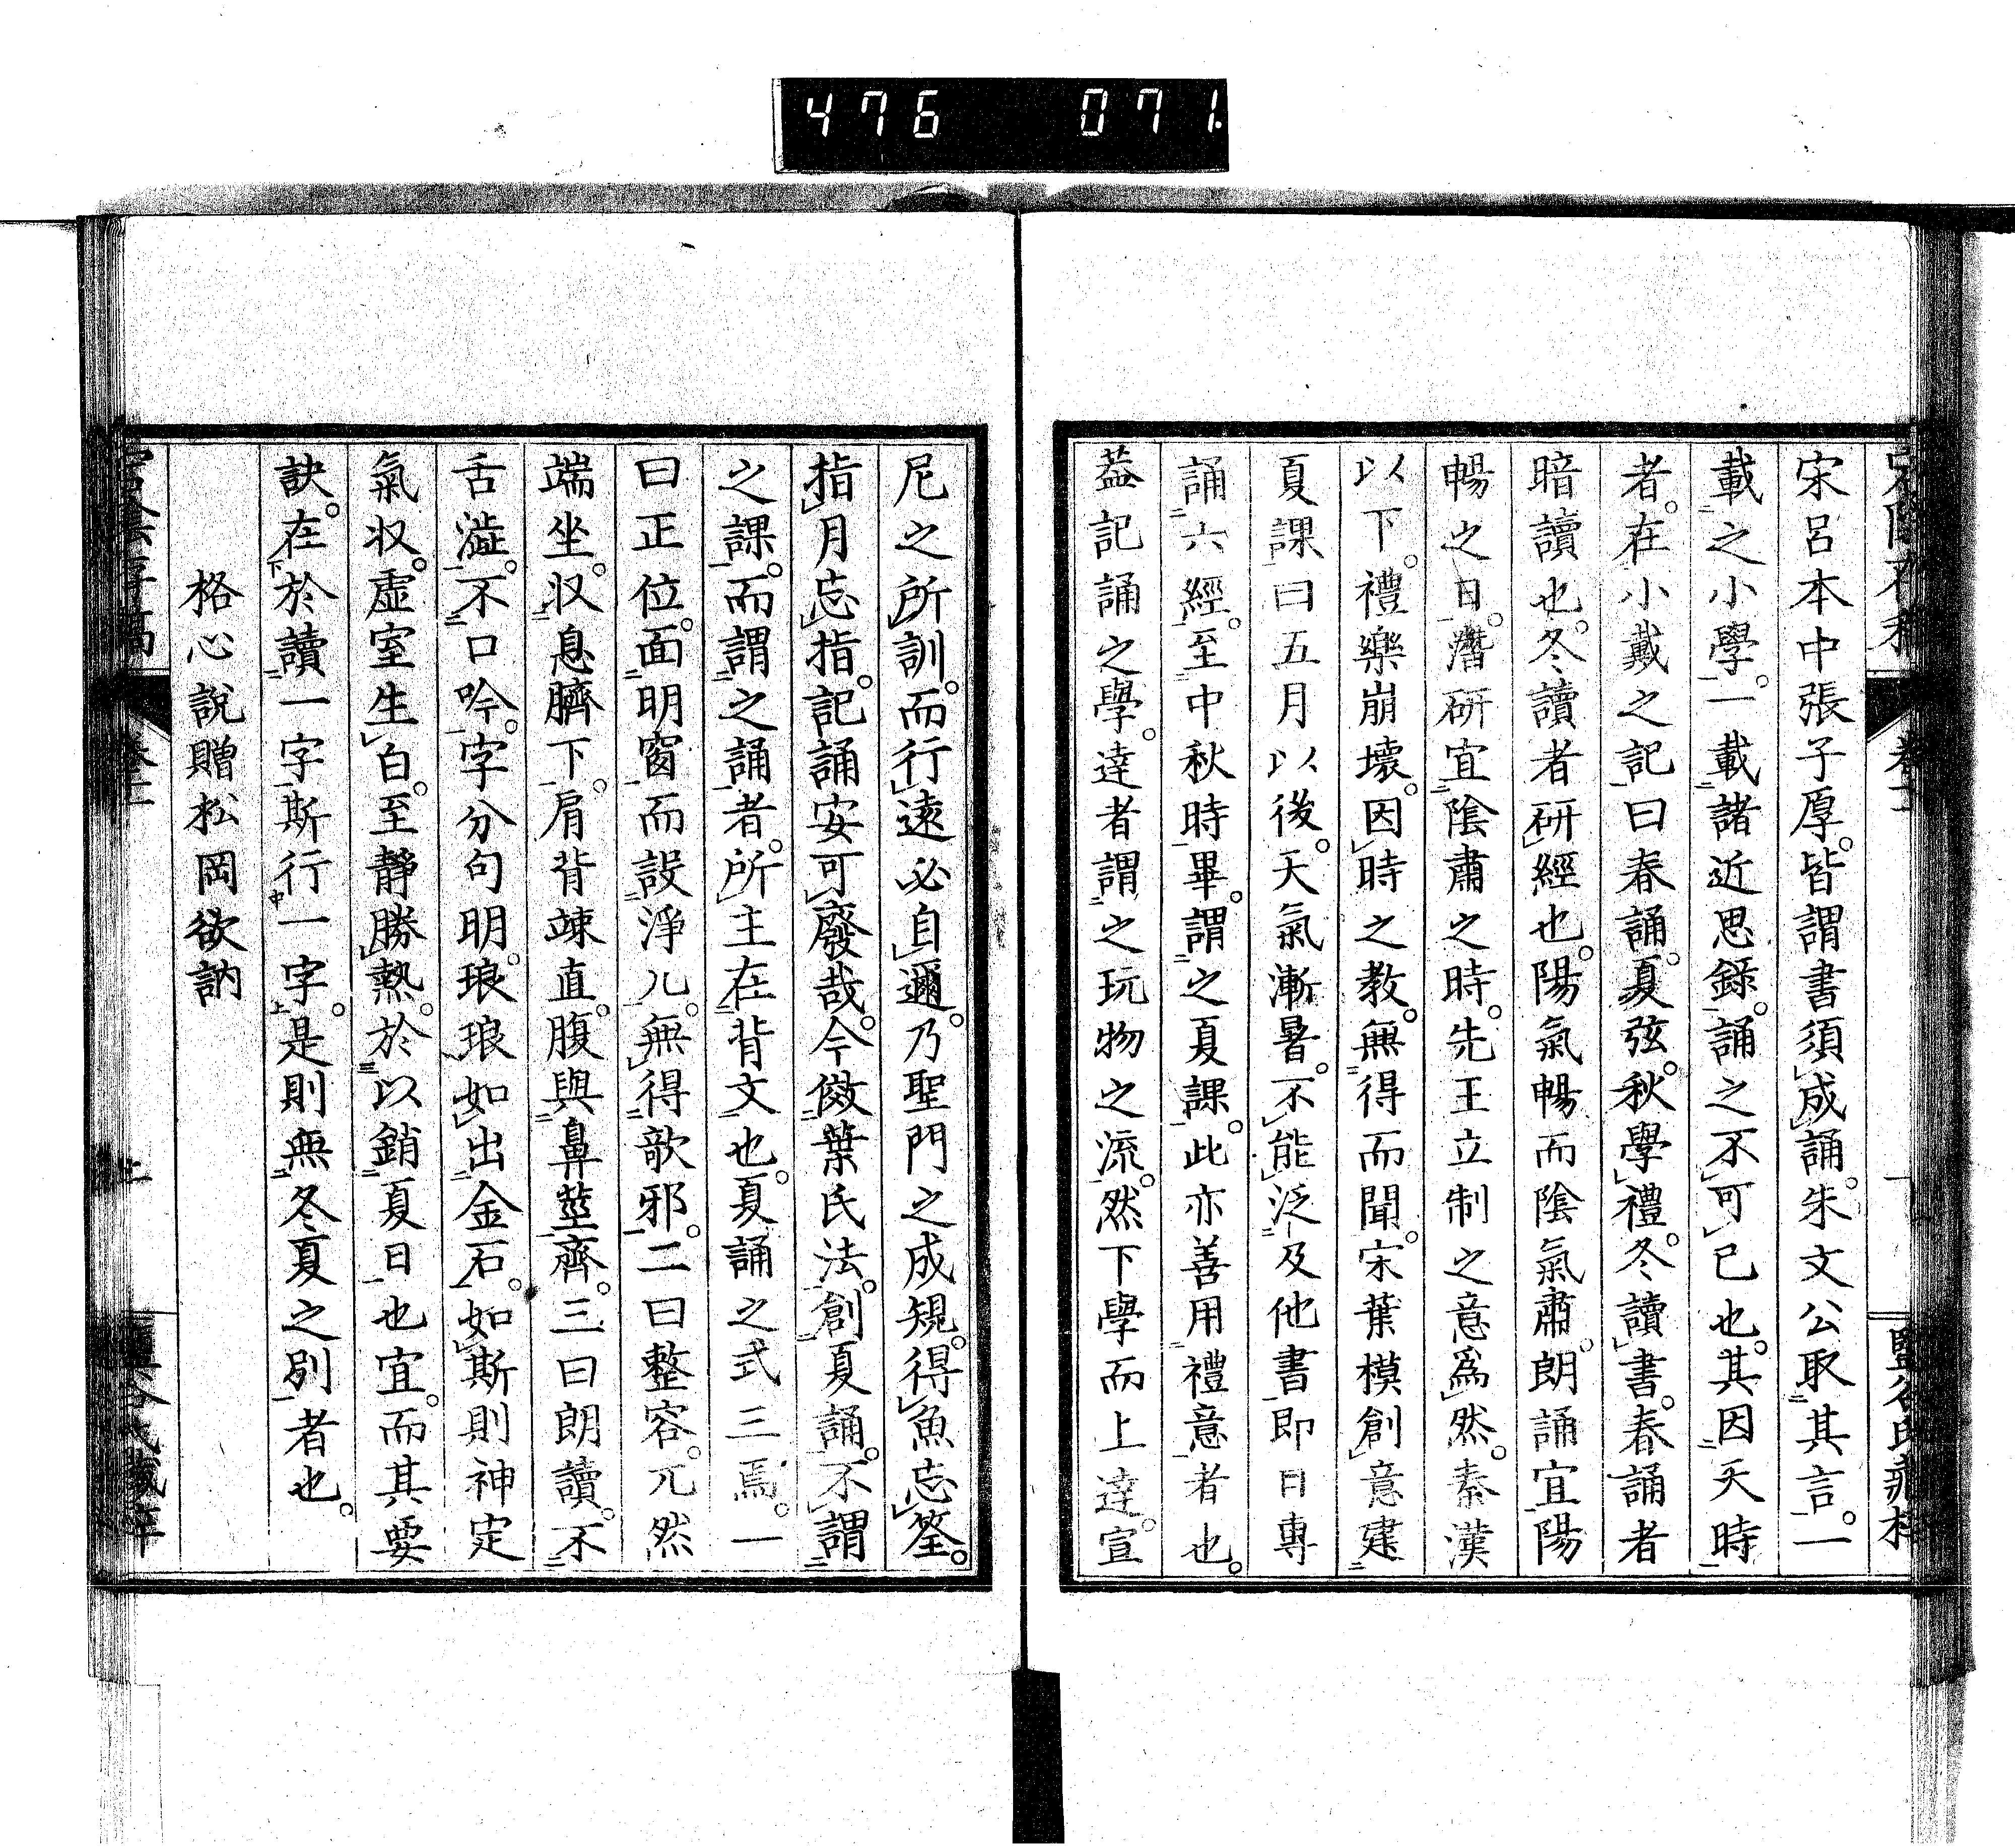 476 071
宋呂本中張子厚。皆謂書須成誦。朱文公取其言。一
載之小學。一載諸近思錄。誦之不可已也。其因天時
者。在小戴之記曰春誦。夏弦。秋學禮。冬讀書。春誦者
暗讀也。冬讀者研經也。陽氣暢而陰氣肅。朗誦宜陽
暢之日。潛研宜陰肅之時。先王立制之意爲然。秦漢
以下。禮樂崩壞。因時之教。無得而聞。宋葉模創意建
夏課。曰五月以後。天氣漸暑。不能泛及他書。即日專
誦六經。至中秋時畢。謂之夏課。此亦善用禮意者也。
蓋記誦之學。達者謂之玩物之流。然下學而上達。宣
尼之所訓。而行遠必自邇。乃聖門之成規。得魚忘筌。
指月忘指。記誦安可廢哉。今倣葉氏法。創夏誦。不謂
之課。而謂之誦者。所主在背文也。夏誦之式三焉。一
曰正位。面明窗而設淨几。無得欹邪。二曰整容。兀然
端坐。収息臍下。肩背竦直。腹與鼻莖齊。三曰朗讀。不
舌澁。不口吟。字分句明。琅琅如出金石。如斯則神定
氣収。虛室生白。至靜勝熱。於以銷夏日也宜。而其要
訣。在於讀一字斯行一字。是則無冬夏之別者也。
格心說贈松岡欲訥